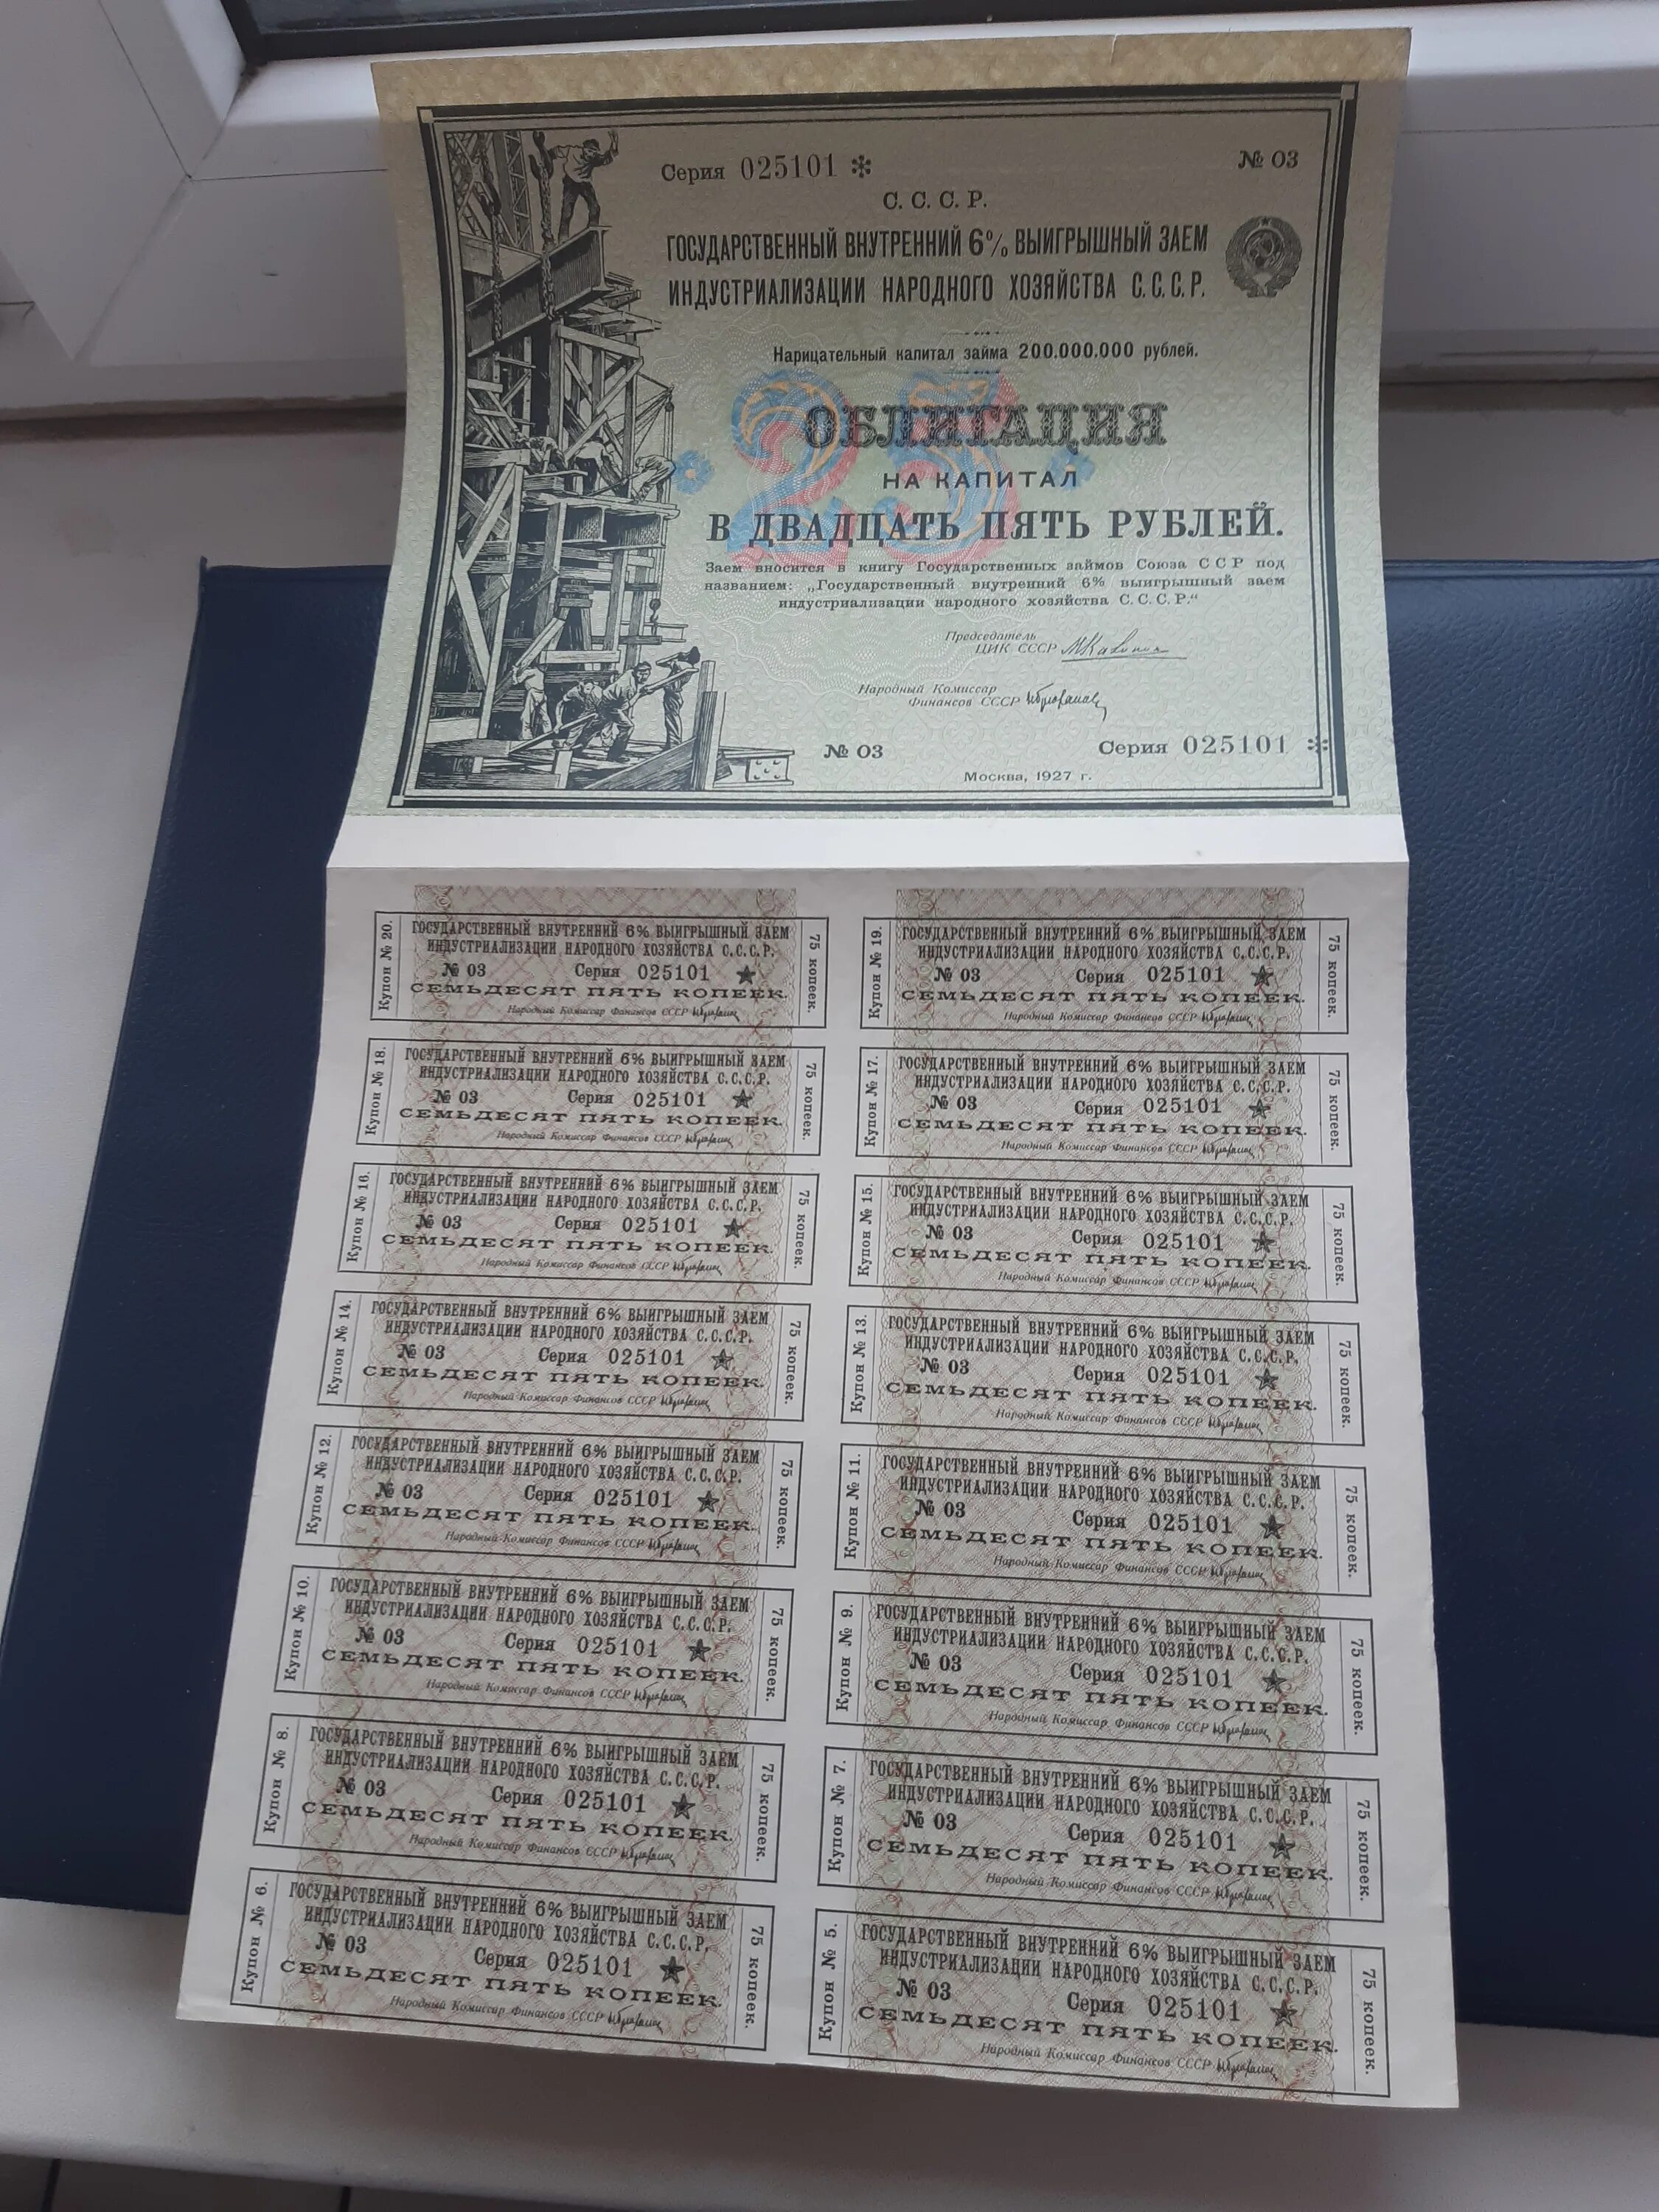 Серия 025101 ✻ № 03
С. С. С. Р.
ГОСУДАРСТВЕННЫЙ ВНУТРЕННИЙ 6% ВЫИГРЫШНЫЙ ЗАЕМ
ИНДУСТРИАЛИЗАЦИИ НАРОДНОГО ХОЗЯЙСТВА С.С.С.Р.
Нарицательный капитал займа 200.000.000 рублей.
25
ОБЛИГАЦИЯ
НА КАПИТАЛ
В ДВАДЦАТЬ ПЯТЬ РУБЛЕЙ.
Заем вносится в книгу Государственных займов Союза ССР под
названием: „Государственный внутренний 6% выигрышный заем
индустриализации народного хозяйства С.С.С.Р.“
Председатель
ЦИК СССР МКалинин
Народный Комиссар
Финансов СССР
№ 03 Серия 025101 ✻
Москва, 1927 г.
Купон № 20.
ГОСУДАРСТВЕННЫЙ ВНУТРЕННИЙ 6% ВЫИГРЫШНЫЙ ЗАЕМ
ИНДУСТРИАЛИЗАЦИИ НАРОДНОГО ХОЗЯЙСТВА С.С.С.Р.
№ 03 Серия 025101 ★
СЕМЬДЕСЯТ ПЯТЬ КОПЕЕК.
Народный Комиссар Финансов СССР
75 копеек.
Купон № 19.
ГОСУДАРСТВЕННЫЙ ВНУТРЕННИЙ 6% ВЫИГРЫШНЫЙ ЗАЕМ
ИНДУСТРИАЛИЗАЦИИ НАРОДНОГО ХОЗЯЙСТВА С.С.С.Р.
№ 03 Серия 025101 ★
СЕМЬДЕСЯТ ПЯТЬ КОПЕЕК.
Народный Комиссар Финансов СССР
75 копеек.
Купон № 18.
ГОСУДАРСТВЕННЫЙ ВНУТРЕННИЙ 6% ВЫИГРЫШНЫЙ ЗАЕМ
ИНДУСТРИАЛИЗАЦИИ НАРОДНОГО ХОЗЯЙСТВА С.С.С.Р.
№ 03 Серия 025101 ★
СЕМЬДЕСЯТ ПЯТЬ КОПЕЕК.
Народный Комиссар Финансов СССР
75 копеек.
Купон № 17.
ГОСУДАРСТВЕННЫЙ ВНУТРЕННИЙ 6% ВЫИГРЫШНЫЙ ЗАЕМ
ИНДУСТРИАЛИЗАЦИИ НАРОДНОГО ХОЗЯЙСТВА С.С.С.Р.
№ 03 Серия 025101 ★
СЕМЬДЕСЯТ ПЯТЬ КОПЕЕК.
Народный Комиссар Финансов СССР
75 копеек.
Купон № 16.
ГОСУДАРСТВЕННЫЙ ВНУТРЕННИЙ 6% ВЫИГРЫШНЫЙ ЗАЕМ
ИНДУСТРИАЛИЗАЦИИ НАРОДНОГО ХОЗЯЙСТВА С.С.С.Р.
№ 03 Серия 025101 ★
СЕМЬДЕСЯТ ПЯТЬ КОПЕЕК.
Народный Комиссар Финансов СССР
75 копеек.
Купон № 15.
ГОСУДАРСТВЕННЫЙ ВНУТРЕННИЙ 6% ВЫИГРЫШНЫЙ ЗАЕМ
ИНДУСТРИАЛИЗАЦИИ НАРОДНОГО ХОЗЯЙСТВА С.С.С.Р.
№ 03 Серия 025101 ★
СЕМЬДЕСЯТ ПЯТЬ КОПЕЕК.
Народный Комиссар Финансов СССР
75 копеек.
Купон № 14.
ГОСУДАРСТВЕННЫЙ ВНУТРЕННИЙ 6% ВЫИГРЫШНЫЙ ЗАЕМ
ИНДУСТРИАЛИЗАЦИИ НАРОДНОГО ХОЗЯЙСТВА С.С.С.Р.
№ 03 Серия 025101 ★
СЕМЬДЕСЯТ ПЯТЬ КОПЕЕК.
Народный Комиссар Финансов СССР
75 копеек.
Купон № 13.
ГОСУДАРСТВЕННЫЙ ВНУТРЕННИЙ 6% ВЫИГРЫШНЫЙ ЗАЕМ
ИНДУСТРИАЛИЗАЦИИ НАРОДНОГО ХОЗЯЙСТВА С.С.С.Р.
№ 03 Серия 025101 ★
СЕМЬДЕСЯТ ПЯТЬ КОПЕЕК.
Народный Комиссар Финансов СССР
75 копеек.
Купон № 12.
ГОСУДАРСТВЕННЫЙ ВНУТРЕННИЙ 6% ВЫИГРЫШНЫЙ ЗАЕМ
ИНДУСТРИАЛИЗАЦИИ НАРОДНОГО ХОЗЯЙСТВА С.С.С.Р.
№ 03 Серия 025101 ★
СЕМЬДЕСЯТ ПЯТЬ КОПЕЕК.
Народный Комиссар Финансов СССР
75 копеек.
Купон № 11.
ГОСУДАРСТВЕННЫЙ ВНУТРЕННИЙ 6% ВЫИГРЫШНЫЙ ЗАЕМ
ИНДУСТРИАЛИЗАЦИИ НАРОДНОГО ХОЗЯЙСТВА С.С.С.Р.
№ 03 Серия 025101 ★
СЕМЬДЕСЯТ ПЯТЬ КОПЕЕК.
Народный Комиссар Финансов СССР
75 копеек.
Купон № 10.
ГОСУДАРСТВЕННЫЙ ВНУТРЕННИЙ 6% ВЫИГРЫШНЫЙ ЗАЕМ
ИНДУСТРИАЛИЗАЦИИ НАРОДНОГО ХОЗЯЙСТВА С.С.С.Р.
№ 03 Серия 025101 ★
СЕМЬДЕСЯТ ПЯТЬ КОПЕЕК.
Народный Комиссар Финансов СССР
75 копеек.
Купон № 9.
ГОСУДАРСТВЕННЫЙ ВНУТРЕННИЙ 6% ВЫИГРЫШНЫЙ ЗАЕМ
ИНДУСТРИАЛИЗАЦИИ НАРОДНОГО ХОЗЯЙСТВА С.С.С.Р.
№ 03 Серия 025101 ★
СЕМЬДЕСЯТ ПЯТЬ КОПЕЕК.
Народный Комиссар Финансов СССР
75 копеек.
Купон № 8.
ГОСУДАРСТВЕННЫЙ ВНУТРЕННИЙ 6% ВЫИГРЫШНЫЙ ЗАЕМ
ИНДУСТРИАЛИЗАЦИИ НАРОДНОГО ХОЗЯЙСТВА С.С.С.Р.
№ 03 Серия 025101 ★
СЕМЬДЕСЯТ ПЯТЬ КОПЕЕК.
Народный Комиссар Финансов СССР
75 копеек.
Купон № 7.
ГОСУДАРСТВЕННЫЙ ВНУТРЕННИЙ 6% ВЫИГРЫШНЫЙ ЗАЕМ
ИНДУСТРИАЛИЗАЦИИ НАРОДНОГО ХОЗЯЙСТВА С.С.С.Р.
№ 03 Серия 025101 ★
СЕМЬДЕСЯТ ПЯТЬ КОПЕЕК.
Народный Комиссар Финансов СССР
75 копеек.
Купон № 6.
ГОСУДАРСТВЕННЫЙ ВНУТРЕННИЙ 6% ВЫИГРЫШНЫЙ ЗАЕМ
ИНДУСТРИАЛИЗАЦИИ НАРОДНОГО ХОЗЯЙСТВА С.С.С.Р.
№ 03 Серия 025101 ★
СЕМЬДЕСЯТ ПЯТЬ КОПЕЕК.
Народный Комиссар Финансов СССР
75 копеек.
Купон № 5.
ГОСУДАРСТВЕННЫЙ ВНУТРЕННИЙ 6% ВЫИГРЫШНЫЙ ЗАЕМ
ИНДУСТРИАЛИЗАЦИИ НАРОДНОГО ХОЗЯЙСТВА С.С.С.Р.
№ 03 Серия 025101 ★
СЕМЬДЕСЯТ ПЯТЬ КОПЕЕК.
Народный Комиссар Финансов СССР
75 копеек.